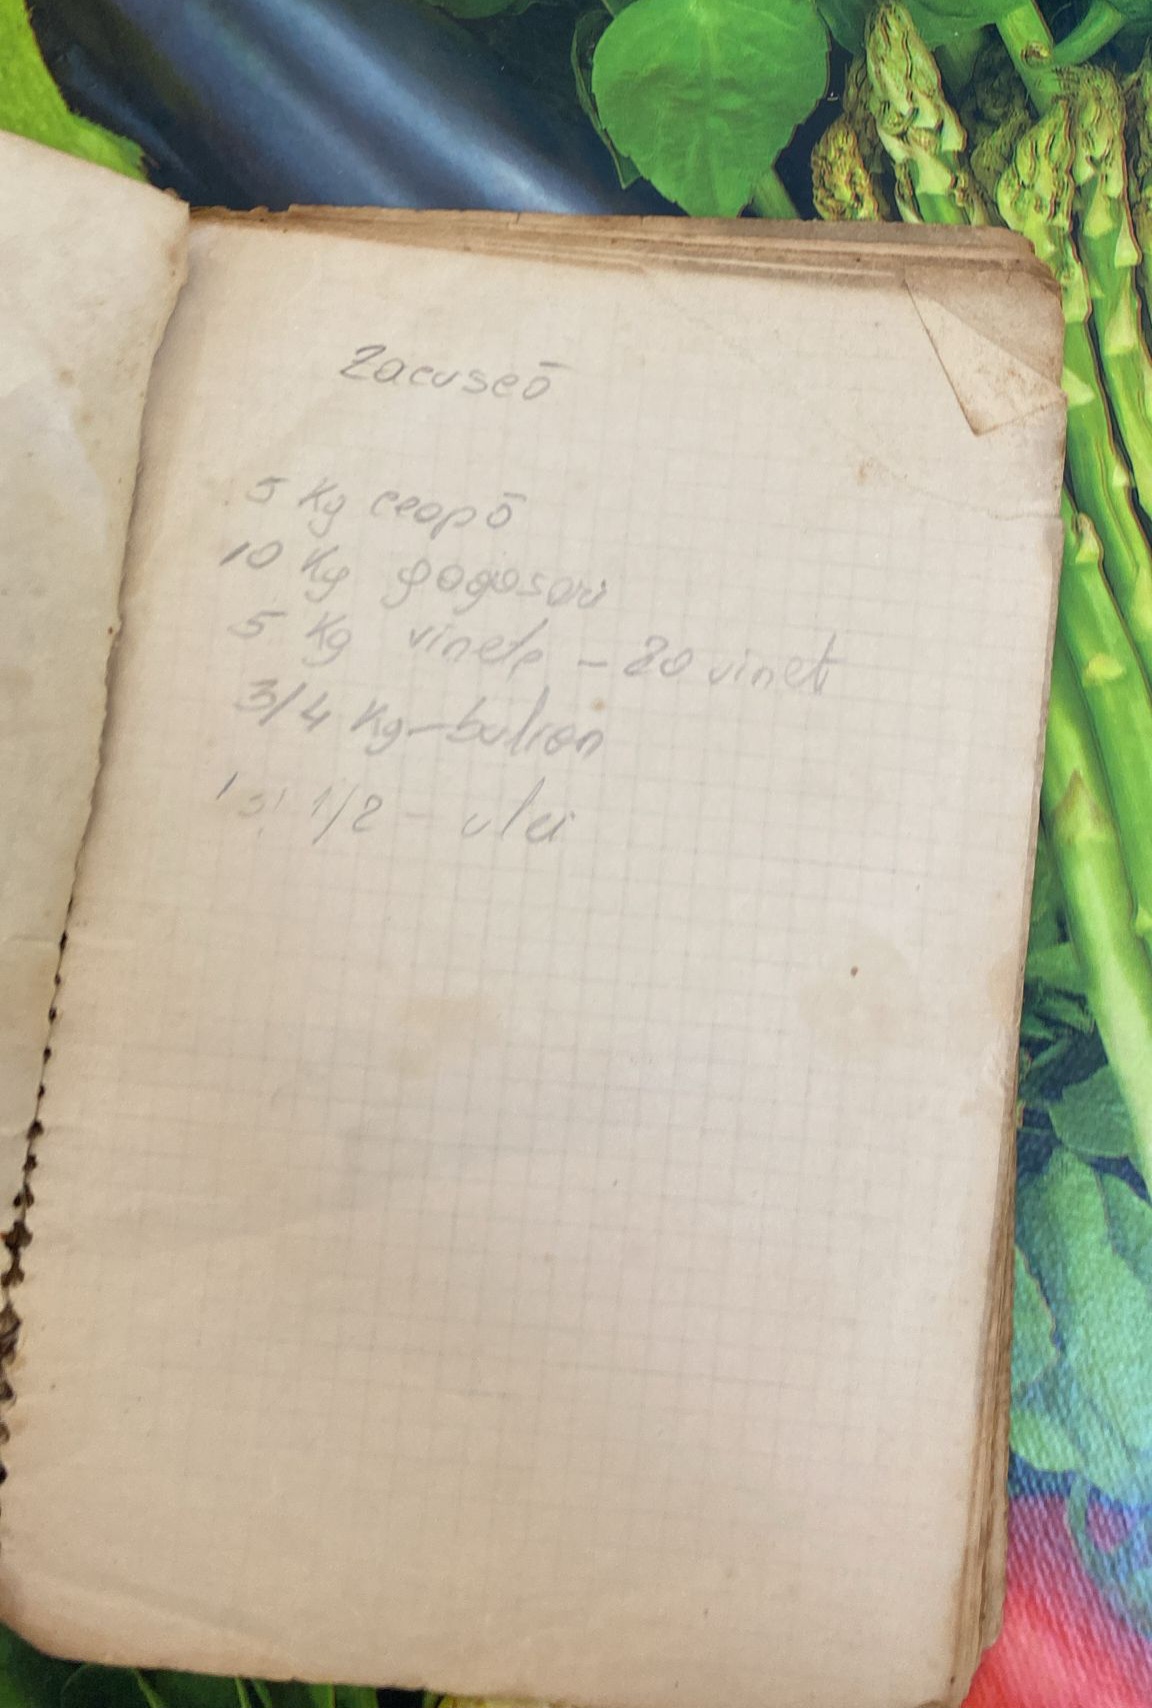 Zacuscă
5 Kg ceapă
10 Kg gogosari
5 Kg vinete – 20 vinete
3/4 Kg – bulion
1 și 1/2 – ulei